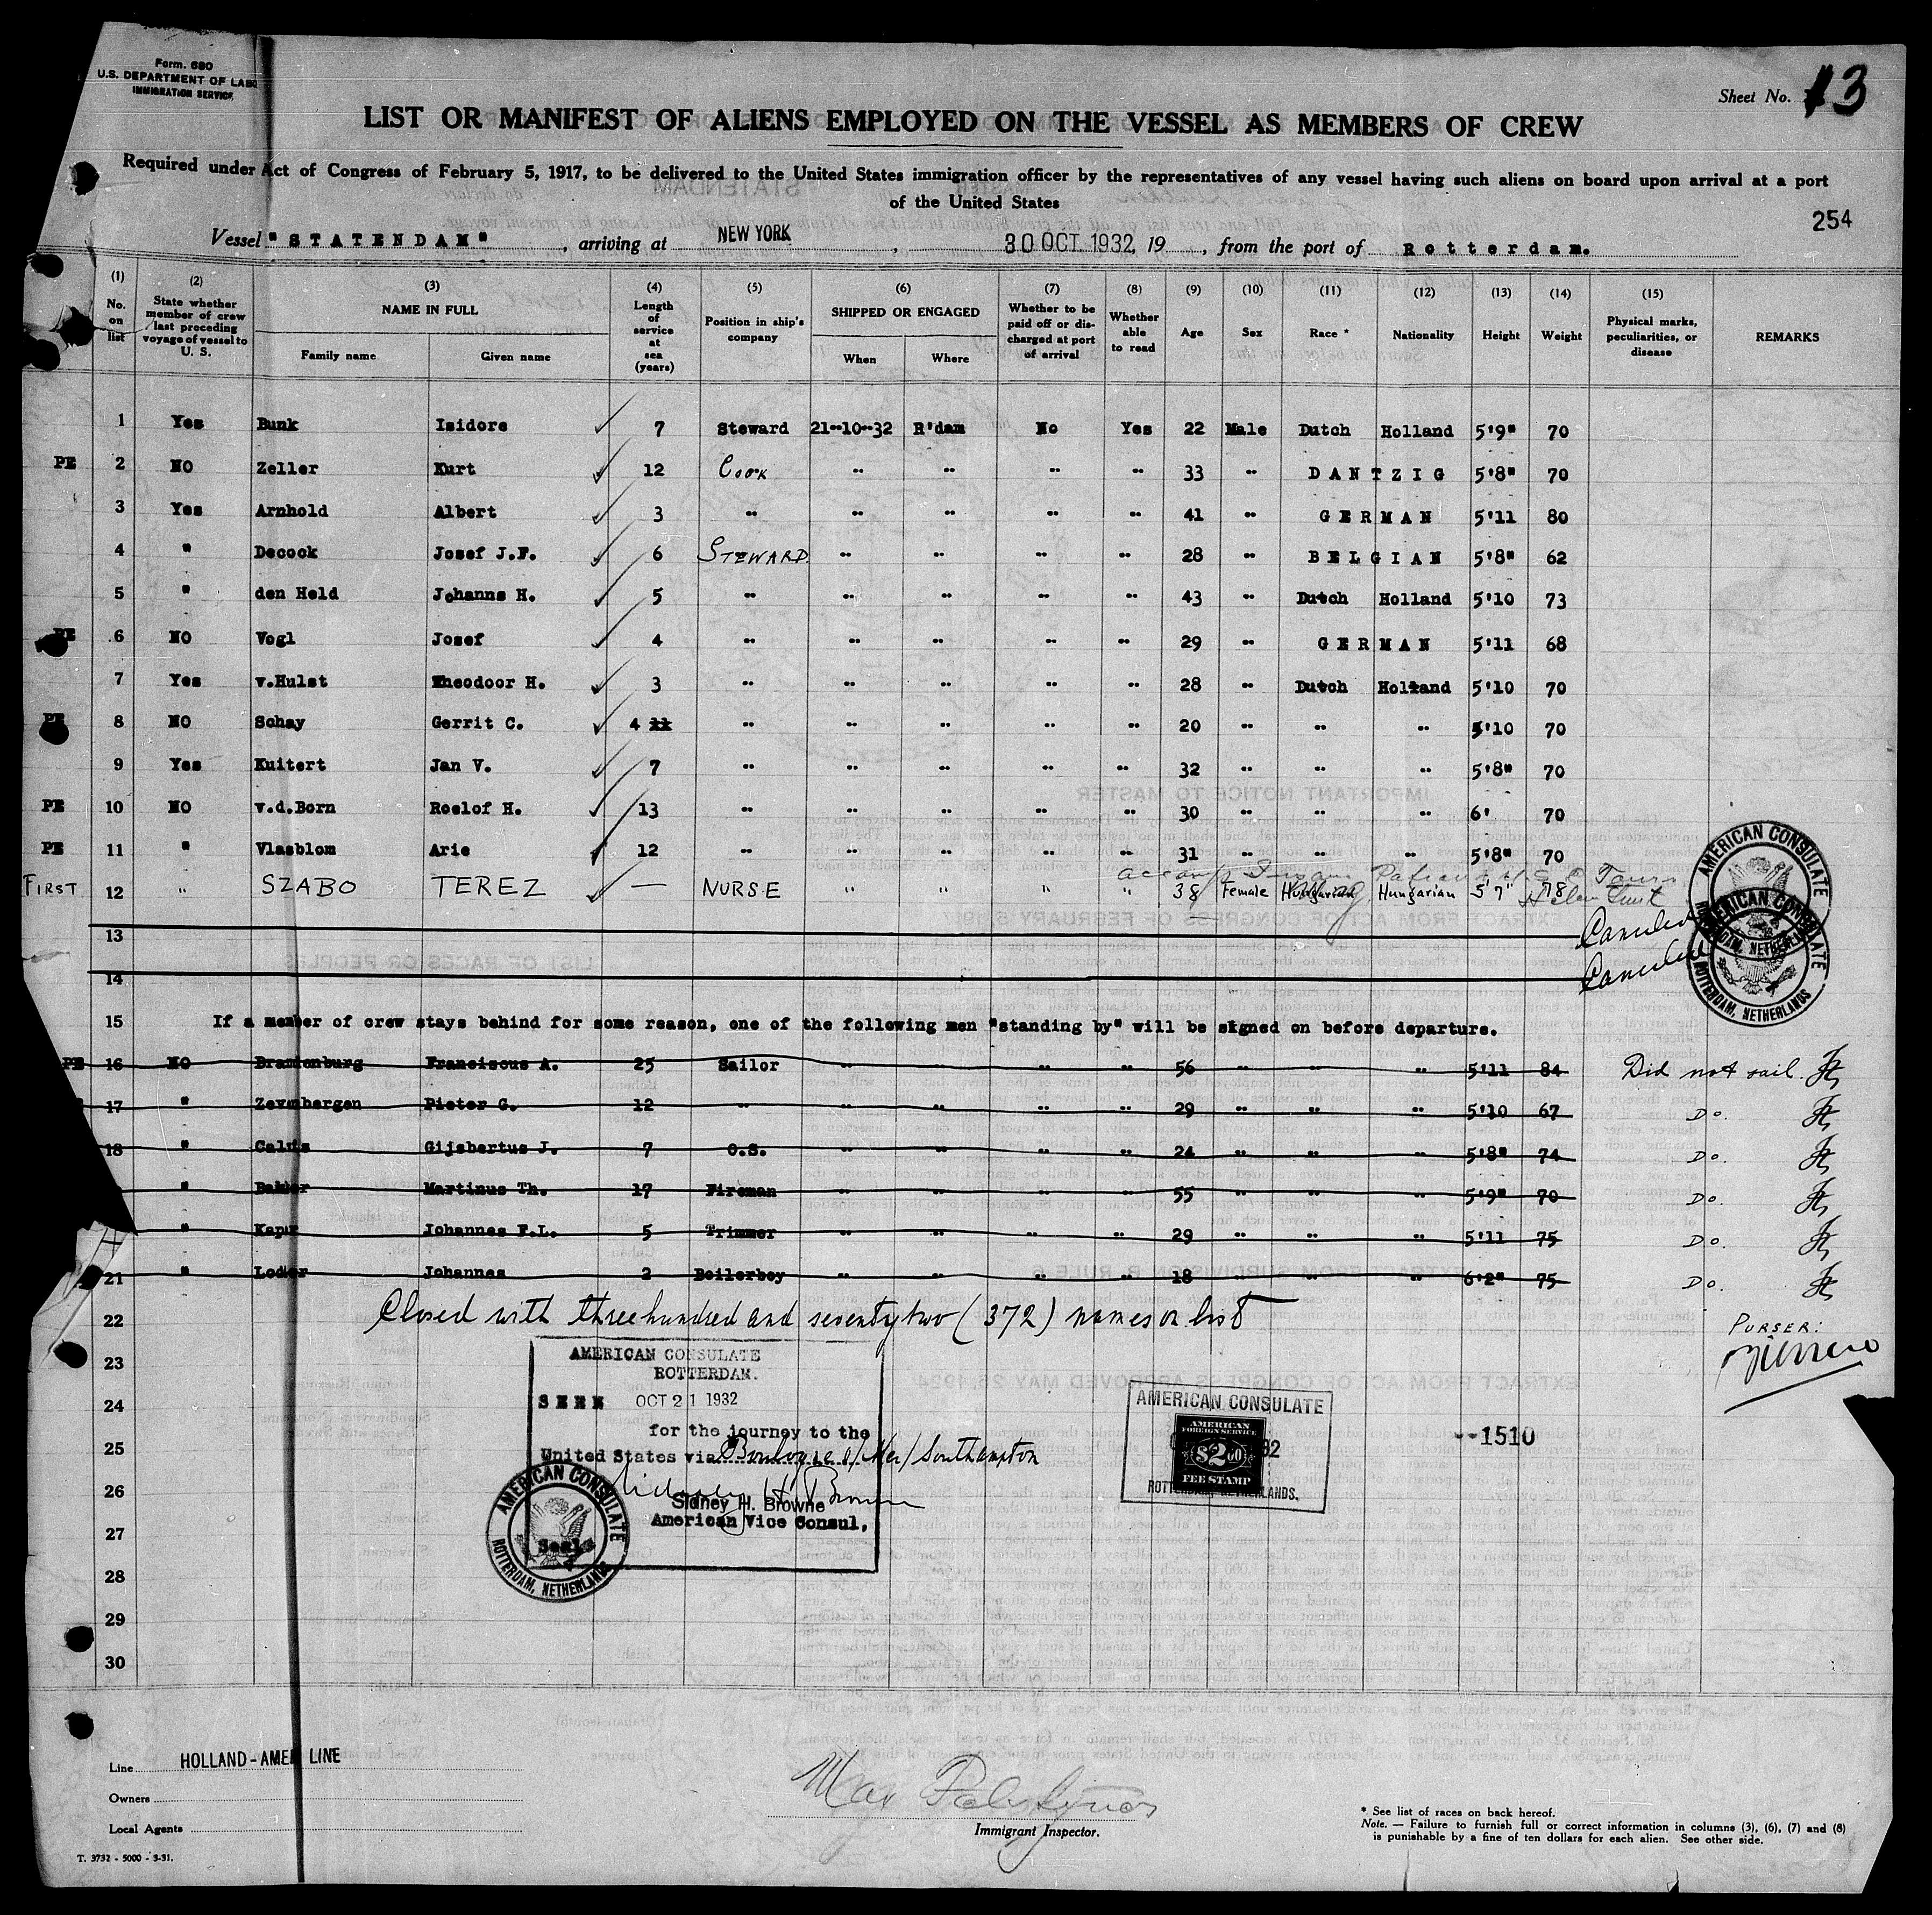 Form. 680
U.S. DEPARTMENT OF LABO
IMMIGRATION SERVICE
Sheet No. 13
LIST OR MANIFEST OF ALIENS EMPLOYED ON THE VESSEL AS MEMBERS OF CREW
Required under Act of Congress of February 5, 1917, to be delivered to the United States immigration officer by the representatives of any vessel having such aliens on board upon arrival at a port
of the United States
254
Vessel "STATENDAM", arriving at NEW YORK, 30 OCT 1932, 19, from the port of Rotterdam.
(1) No. on list (2) State whether member of crew last preceding voyage of vessel to U. S. (3) NAME IN FULL Family name Given name (4) Length of service at sea (years) (5) Position in ship's company (6) SHIPPED OR ENGAGED When Where (7) Whether to be paid off or discharged at port of arrival (8) Whether able to read (9) Age (10) Sex (11) Race * (12) Nationality (13) Height (14) Weight (15) Physical marks, peculiarities, or disease REMARKS
1 Yes Bunk Isidore 7 Steward 21-10-32 R'dam No Yes 22 Male Dutch Holland 5'9" 70
PE 2 NO Zeller Kurt 12 Cook " " " " 33 " DANTZIG 5'8" 70
3 Yes Arnhold Albert 3 " " " " " 41 " GERMAN 5'11 80
4 " Decock Josef J.F. 6 STEWARD " " " " 28 " BELGIAN 5'8" 62
5 " den Held Johanns H. 5 " " " " " 43 " Dutch Holland 5'10 73
PE 6 NO Vogl Josef 4 " " " " " 29 " GERMAN 5'11 68
7 Yes v.Hulst Theodoor H. 3 " " " " " 28 " Dutch Holland 5'10 70
PE 8 NO Schay Gerrit C. 4 11 " " " " " 20 " " " 5'10 70
9 Yes Kuitert Jan V. 7 " " " " " 32 " " " 5'8" 70
PE 10 NO v.d.Born Roelof H. 13 " " " " " 30 " " " 6' 70
PE 11 " Vlasblom Arie 12 " " " " " 31 " " " 5'8" 70
FIRST 12 " SZABO TEREZ — NURSE " " " " 38 Female Hungarian Hungarian 5'7" 78
13 Canceled
14 Canceled
AMERICAN CONSULATE
ROTTERDAM, NETHERLANDS
AMERICAN CONSULATE
ROTTERDAM, NETHERLANDS
15 If a member of crew stays behind for some reason, one of the following men "standing by" will be signed on before departure.
PE 16 NO Brandenburg Franciscus A. 25 Sailor " " " " 56 " " " 5'11 84 Did not sail.
17 " Zevenbergen Pieter G. 12 " " " " " 29 " " " 5'10 67 Do.
18 " Gijsbertus J. 7 O.S. " " " " 24 " " " 5'8" 74 Do.
" Bakker Martinus Th. 17 Fireman " " " " 55 " " " 5'9" 70 Do.
" Johannes F.L. 5 Trimmer " " " " 29 " " " 5'11 75 Do.
21 " Loder Johannes 2 Boilerboy " " " " 18 " " " 6'2" 75 Do.
22 Closed with three hundred and seventy two (372) names on list
PURSER:
23
24
25
26
27
28
29
30
AMERICAN CONSULATE
ROTTERDAM.
SEEN OCT 21 1932
for the journey to the
United States via Boulogne s/Mer/Southampton
Sidney H. Browne
American Vice Consul,
Seal
AMERICAN CONSULATE
ROTTERDAM, NETHERLANDS
AMERICAN CONSULATE
AMERICAN
FOREIGN SERVICE
$2.00
FEE STAMP
ROTTERDAM, NETHERLANDS.
--1510
Line HOLLAND-AMER LINE
Owners
Local Agents
T. 3732 - 5000 - 3-31.
Immigrant Inspector.
* See list of races on back hereof.
Note. — Failure to furnish full or correct information in columns (3), (6), (7) and (8)
is punishable by a fine of ten dollars for each alien. See other side.